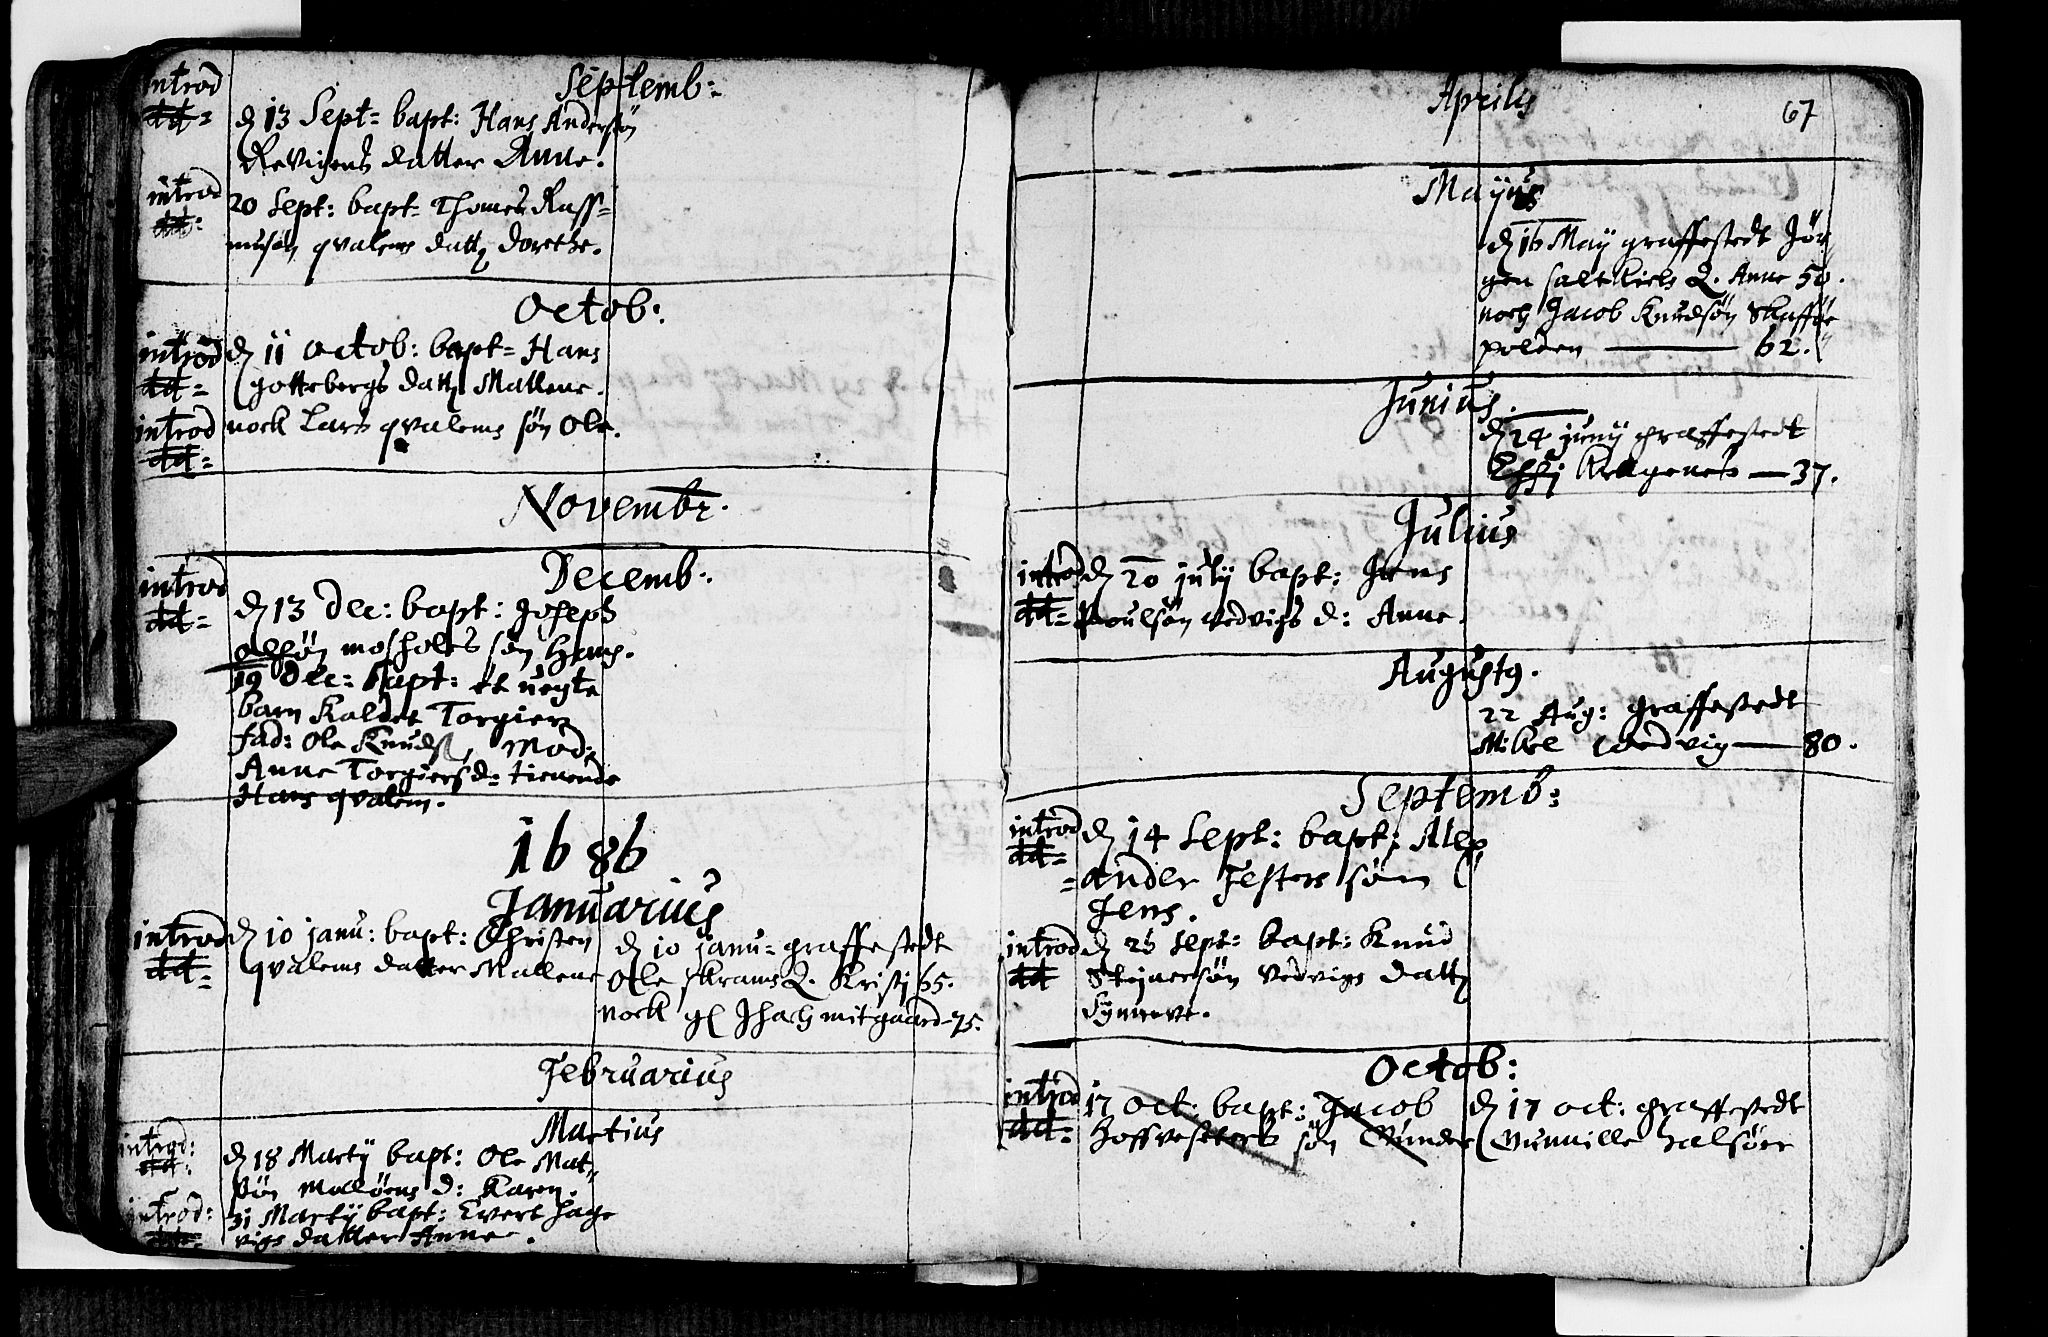 Septemb:
introd
dd=
d 13 Sept= bapt: Hans Andersøn
Revigens datter Anne.
introd
dd:
20 Sept: bapt= Thomes Rass=
musøn qvalems datt Dorethe.
Octob:
introd
dd=
d 11 octob: bapt= Hans
gottebergs datt Mallene.
introd
dd=
nock Lars qvalems søn Ole.
Novembr.
Decemb:
introd
dd=
d 13 Dec: bapt: Joseph
olsøn mosholts søn Hans.
19 Dec: bapt: et uegte
barn Kaldet Torgier
fad: Ole Knuds, Mod:
Anne Torgiersd= tienende
Hans qvalem.
1686
Januarius
introd
dd=
d 10 janu: bapt: Christen
qvalems datter Mallene
d 10 janu= graffestedt
Ole skrams Q. Kristj 65.
nock gl Jsach mitgaard-75.
Februarius
Martius
introd:
dd:
d 18 Martij bapt: Ole Mat=
søn Molløens d: Karen.
introd:
dd=
31 Martij bapt: Evert hage
vigs datter Anne.
67
Aprilis
Mayus
d 16 Maij graffestedt Jør
gen saltkiels Q. Anne 50.
noch Jacob Knudsøn Skafføe
polden — 62.
Junius.
d 24 junij graffestedt
Effj Kragenes — 37.
Julius
introd
dd=
d 20 july bapt: Jens
Poulsøn vedvigs d: Anne.
Augustq.
22 Aug: graffestedt
Mikel vedvig — 80.
Septemb:
introd
dd=
d 14 Sept: bapt: Alex
=ander Festers søn
Jens.
introd
dd
d 25 Sept= bapt: Knud
Stejnersøn vedvigs datt
Synneve.
Octob:
introd
dd=
17 oct: bapt: Jacob
hoffvesters søn Gunder
d 17 oct: graffestedt
Gunnille halsøer